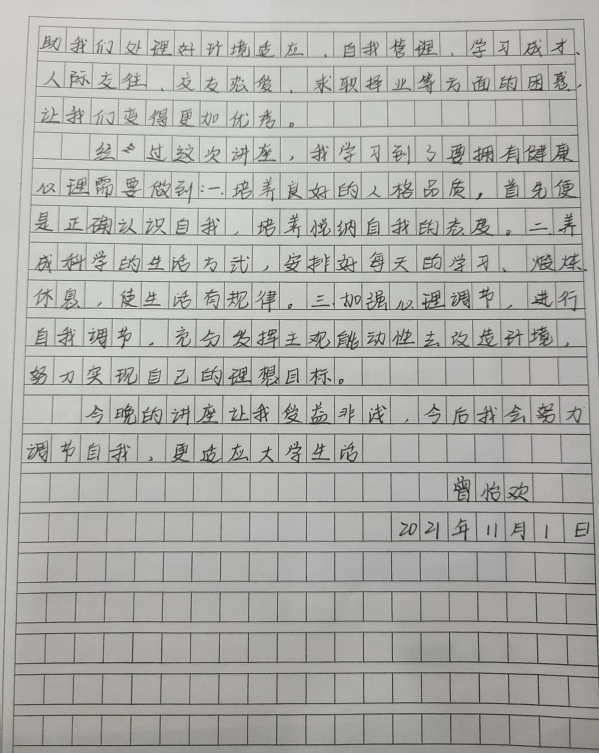 助我们处理好环境适应、自我管理、学习成才、
人际交往、交友恋爱、求职择业等方面的困惑，
让我们变得更加优秀。
经过这次讲座，我学习到了要拥有健康
心理需要做到：一.培养良好的人格品质，首先便
是正确认识自我，培养悦纳自我的态度。二.养
成科学的生活方式，安排好每天的学习、煅炼、
休息，使生活有规律。三.加强心理调节，进行
自我调节，充分发挥主观能动性去改造环境，
努力实现自己的理想目标。
今晚的讲座让我受益非浅，今后我会努力
调节自我，更适应大学生活
曾怡欢
2021年11月1日